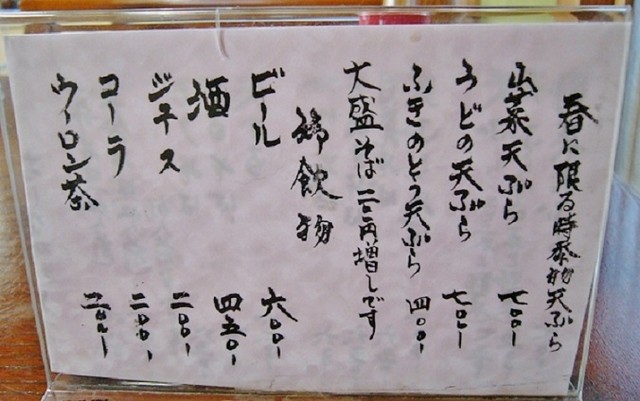 春に限る時季物天ぷら
山菜天ぷら 七〇〇ー
うどの天ぷら 七〇〇ー
ふきのとう天ぷら 四〇〇ー
大盛そば二〇〇円増しです
御飲物
ビール 六〇〇ー
酒 四五〇ー
ジュース 二〇〇ー
コーラ 二〇〇ー
ウーロン茶 二〇〇ー